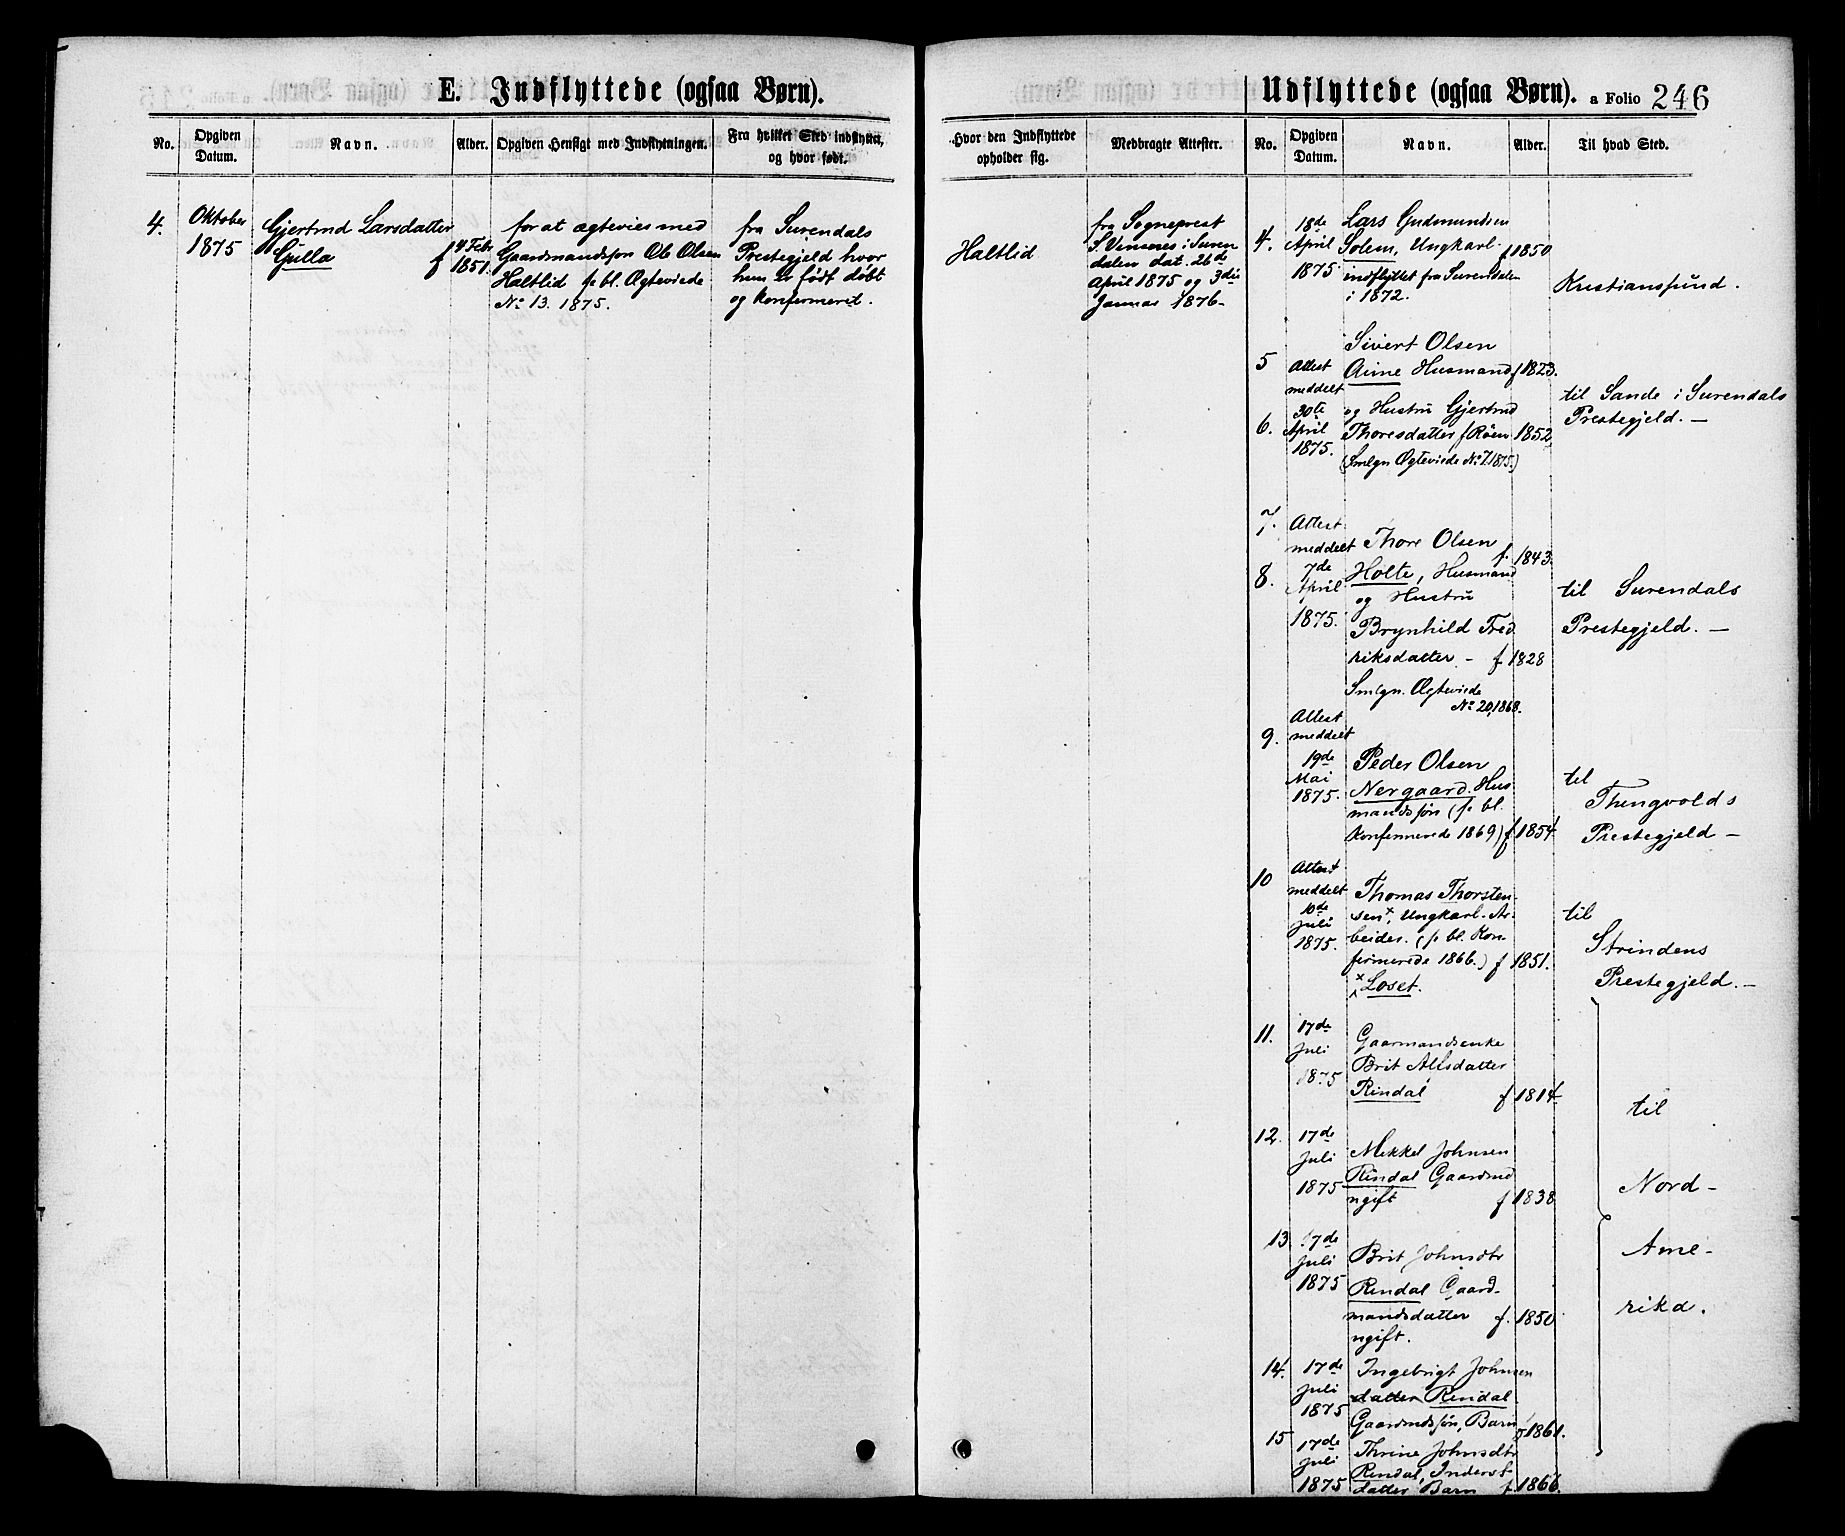 E. Indflyttede (ogsaa Børn).
No.
Opgiven
Datum.
Navn.
Alder.
Opgiven Hensigt med Indflytningen.
Fra hvilket Sted indflyttet,
og hvor født.
Hvor den Indflyttede
opholder sig.
Medbragte Attester.
4.
Oktober
1875
Gjertrud Larsdatter
Gulla
f
4 Febr
1851.
for at ægtevies med
Gaardmandssøn Ole Olsen
Haltlid fr bl. Ægteviede
No 13. 1875.
fra Surendals
Prestegjeld hvor
hun er født døbt
og konfirmeret.
Haltlid
fra Sogneprest
i Suren
dalen dat. 26de
April 1875 og 3die
Januar 1876-
Udflyttede (ogsaa Børn). a Folio 246
No.
Opgiven
Datum.
Navn.
Alder.
Til hvad Sted.
4.
18de
April
1875
Lars Gudmundsen
Solem, Ungkarl.
indflyttet fra Surendalen
i 1872.
f 1850
Kristianssund.
5
6.
Attest
meddelt
30te
April
1875.
Sivert Olsen
Aune Husmand f 1823.
og Hustru Gjertrud
Thoresdatter f Røen 1852
(Smlgn Ægteviede No 7. 1875.)
til Sande i Surendals
Prestegjeld. —
7.
8.
Attest
meddelt
7de
April
1875.
Thore Olsen
f. 1843.
Holte, Husmand
og Hustru
Brynhild Fred
riksdatter - f 1828
Smlgn. Ægteviede
No 20, 1868.
til Surendals
Prestegjeld. —
9.
Attest
meddelt
19de
Mai
1875.
Peder Olsen
Nergaard Hus
mandssøn (fr bl.
Konfirmerede 1869) f 1854
til
Thingvolds
Prestegjeld —
10
Attest
meddelt
10de
Juli
1875.
Thomas Thorsten-
sen x, Ungkarl. Ar-
beider. (fr bl. Kon-
firmerede 1866.) f 1851.
x Løset.
til
Strindens
Prestegjeld. —
11.
17de
Juli
1875
Gaarmandsenke
Brit Atlsdatter
Rindal f 1814
12.
17de
Juli
1875
Mikkel Johnsen
Rindal Gaardmd
ugift f 1838
13
17de
Juli
1875
Brit Johnsdtr
Rindal Gaard-
mandsdatter f. 1850
ugift.
14.
17de
Juli
1875
Ingebrigt Johnsen
datter Rindal
Gaardmdssøn, Barn f 1861.
15
17de
Juli
1875
Thrine Johnsdtr
Rindal, Inderst
datter Barn f. 1866.
til
Nord-
Ame-
rika.